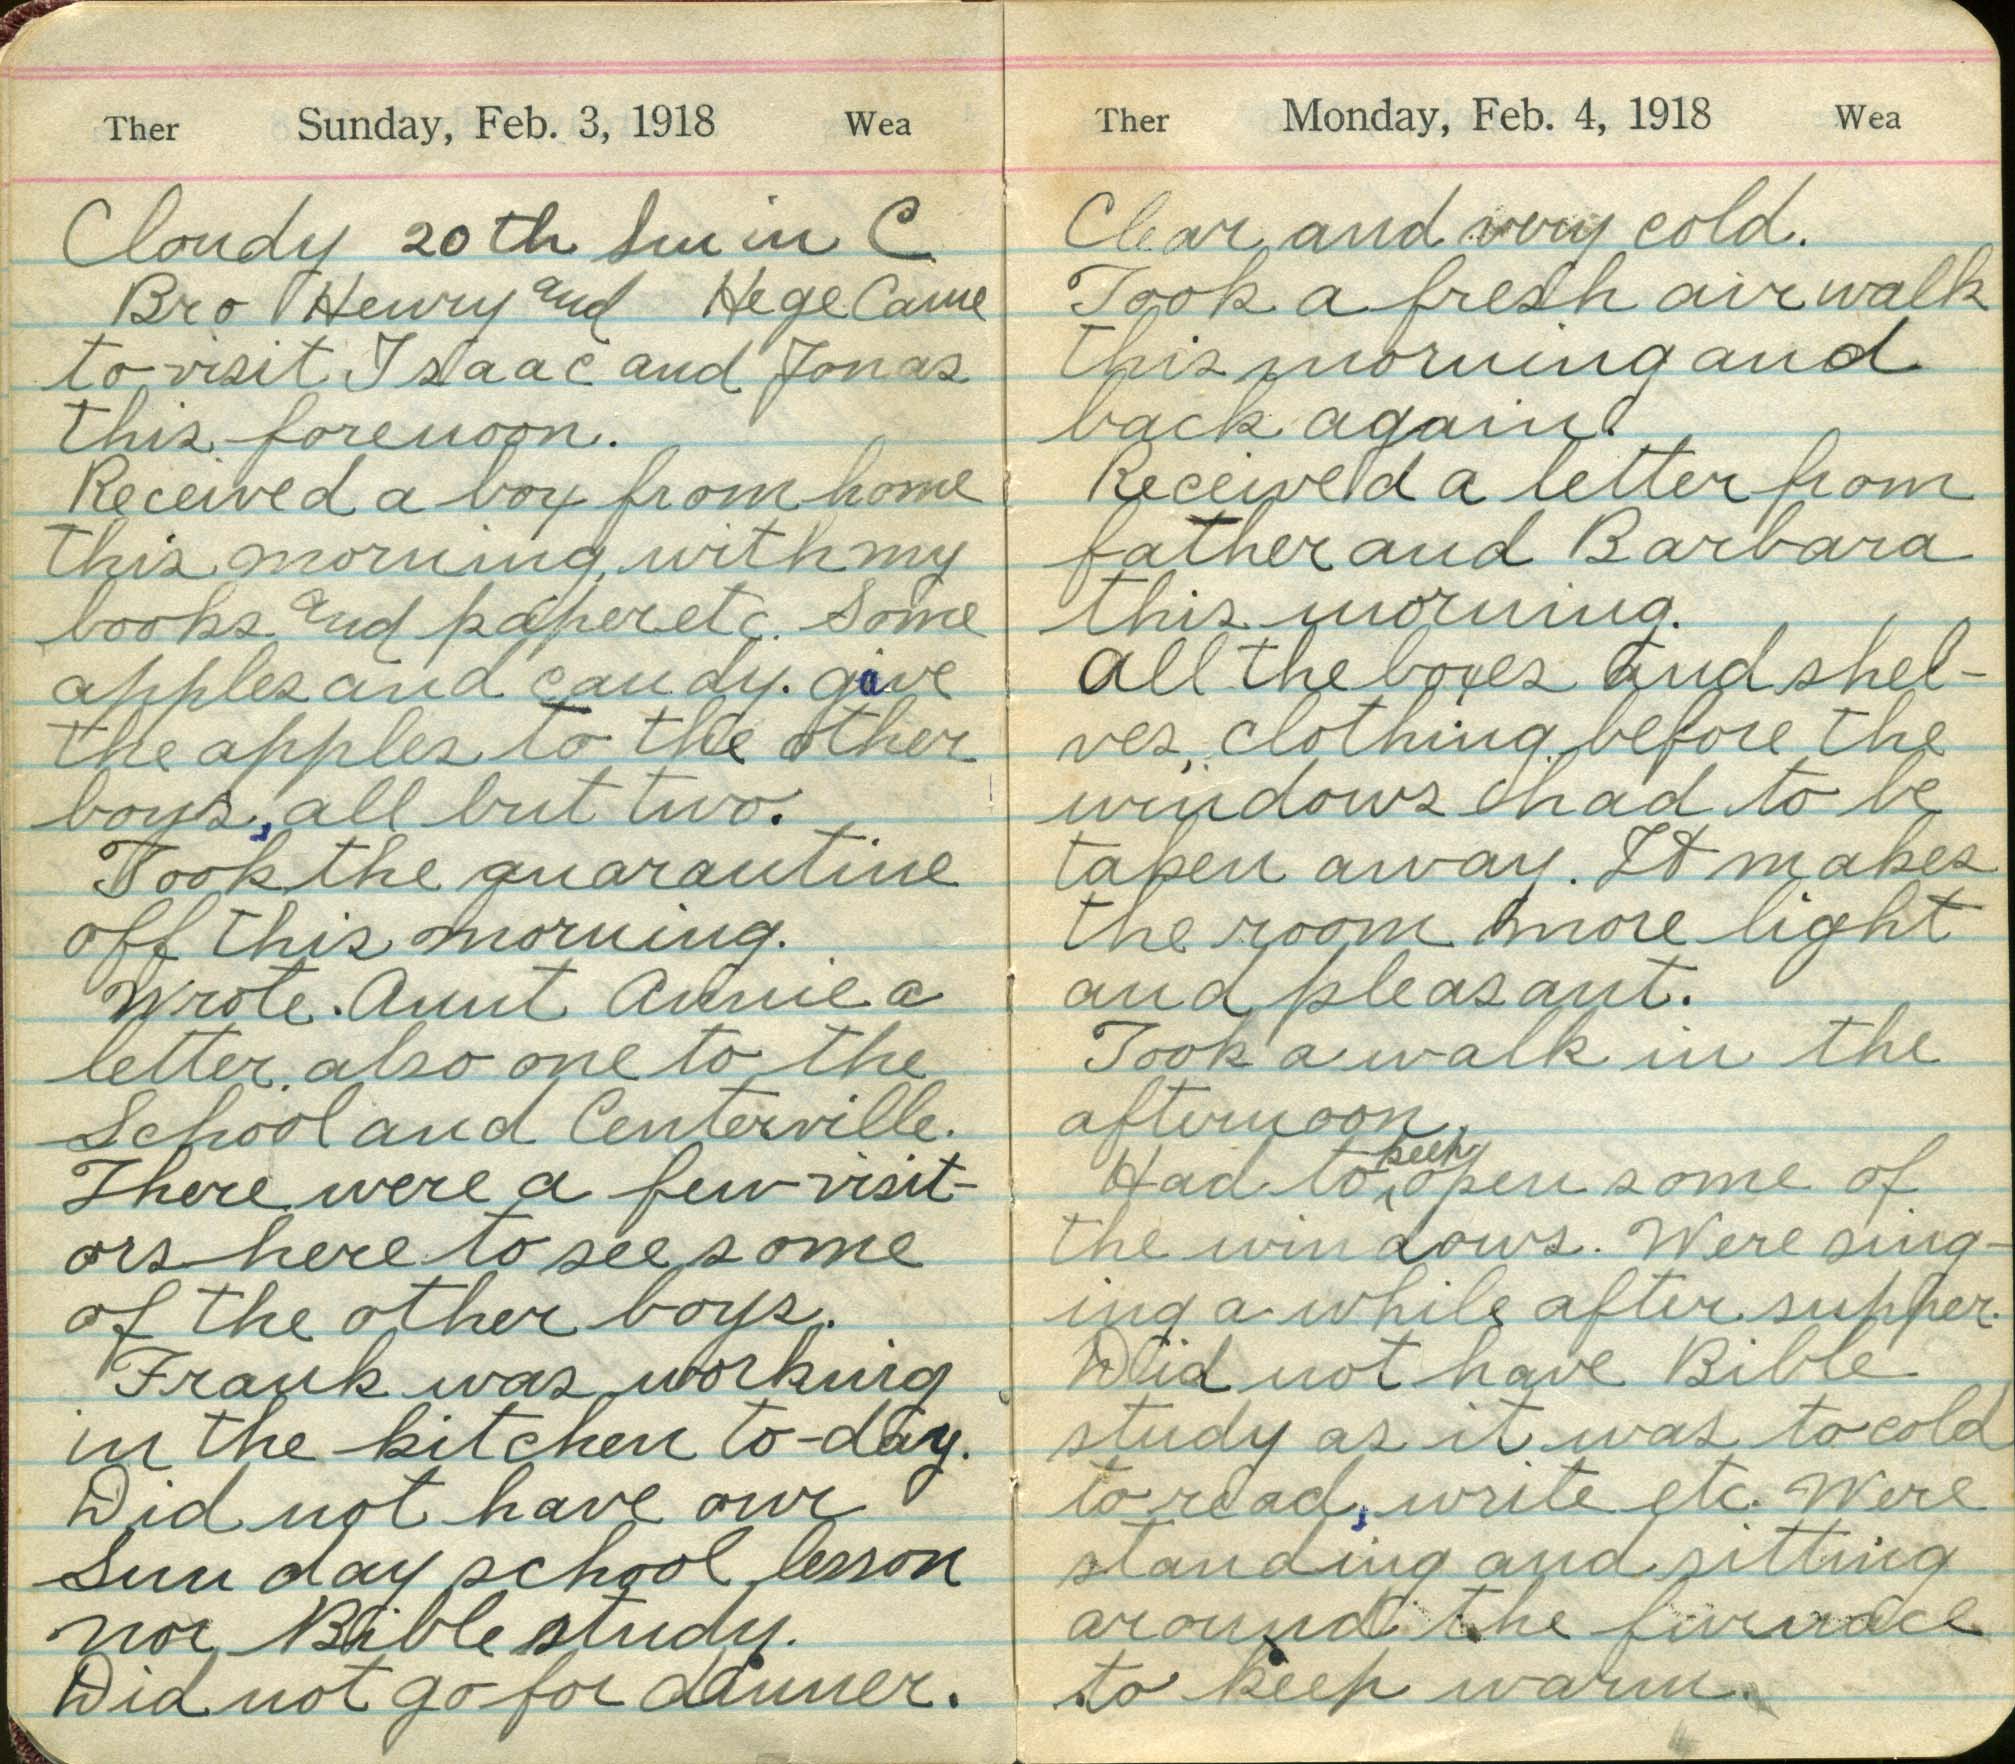 Ther Sunday, Feb. 3, 1918 Wea
Cloudy 20th Sun in C
Bro Henry and Hege Came
to visit Isaac and Jonas
this forenoon.
Received a box from home
this morning with my
books and paper etc. Some
apples and candy. gave
the apples to the other
boys, all but two.
Took the quarantine
off this morning.
Wrote. Aunt Annie a
letter also one to the
School and Centerville.
There were a few visit-
ors here to see some
of the other boys.
Frank was working
in the kitchen to-day.
Did not have our
Sunday school lesson
nor Bible study.
Did not go for dinner.
Ther Monday, Feb. 4, 1918 Wea
Clear and very cold.
Took a fresh air walk
this morning and
back again.
Received a letter from
father and Barbara
this morning.
All the boxes and shel-
ves, clothing before the
windows had to be
taken away. It makes
the room more light
and pleasant.
Took a walk in the
afternoon.
Had to keep open some of
the windows. Were sing-
ing a while after supper.
Did not have Bible
study as it was to cold
to read, write etc. Were
standing and sitting
around the furnace
to keep warm.